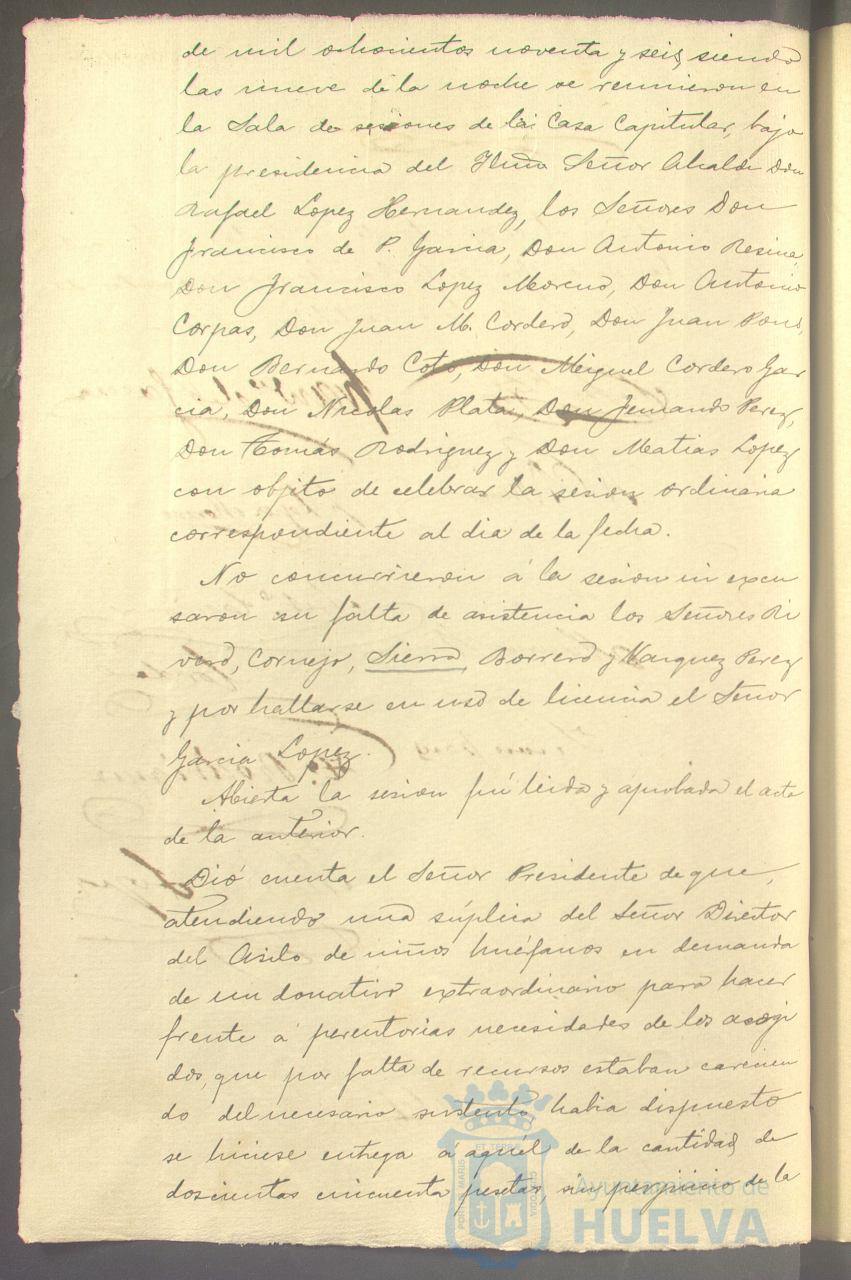 de mil ochocientos noventa y seis, siendo
las nueve de la noche se reunieron en
la Sala de sesiones de la Casa Capitular, bajo
la presidencia del Iltmo Señor Alcalde Don
Rafael Lopez Hernandez, los Señores Don
Francisco de P. Garcia, Don Antonio Resina,
Don Francisco Lopez Moreno, Don Antonio
Corpas, Don Juan M. Cordero, Don Juan Pons,
Don Bernardo Coto, Don Miguel Cordero Gar
cia, Don Nicolas Plata, Don Fernando Perez,
Don Tomás Rodriguez y Don Matias Lopez
con objeto de celebrar la sesion ordinaria
correspondiente al dia de la fecha.
No concurrieron á la sesion ni excu
saron su falta de asistencia los Señores Ri
vero, Cornejo, Sierra, Borrero y Marquez Perez
y por hallarse en uso de licencia el Señor
Garcia Lopez.
Abierta la sesion fué leida y aprobada el acta
de la anterior.
Dió cuenta el Señor Presidente de que,
atendiendo una súplica del Señor Director
del Asilo de niños huérfanos en demanda
de un donativo extraordinario para hacer
frente á perentorias necesidades de los acogi
dos, que por falta de recursos estaban carecien
do del necesario sustento habia dispuesto
se hiciese entrega á aquél de la cantidad de
doscientas cincuenta pesetas, sin perjuicio de la
PORTUS MARIS ET TERRE CUSTODIA
Ayuntamiento de
HUELVA